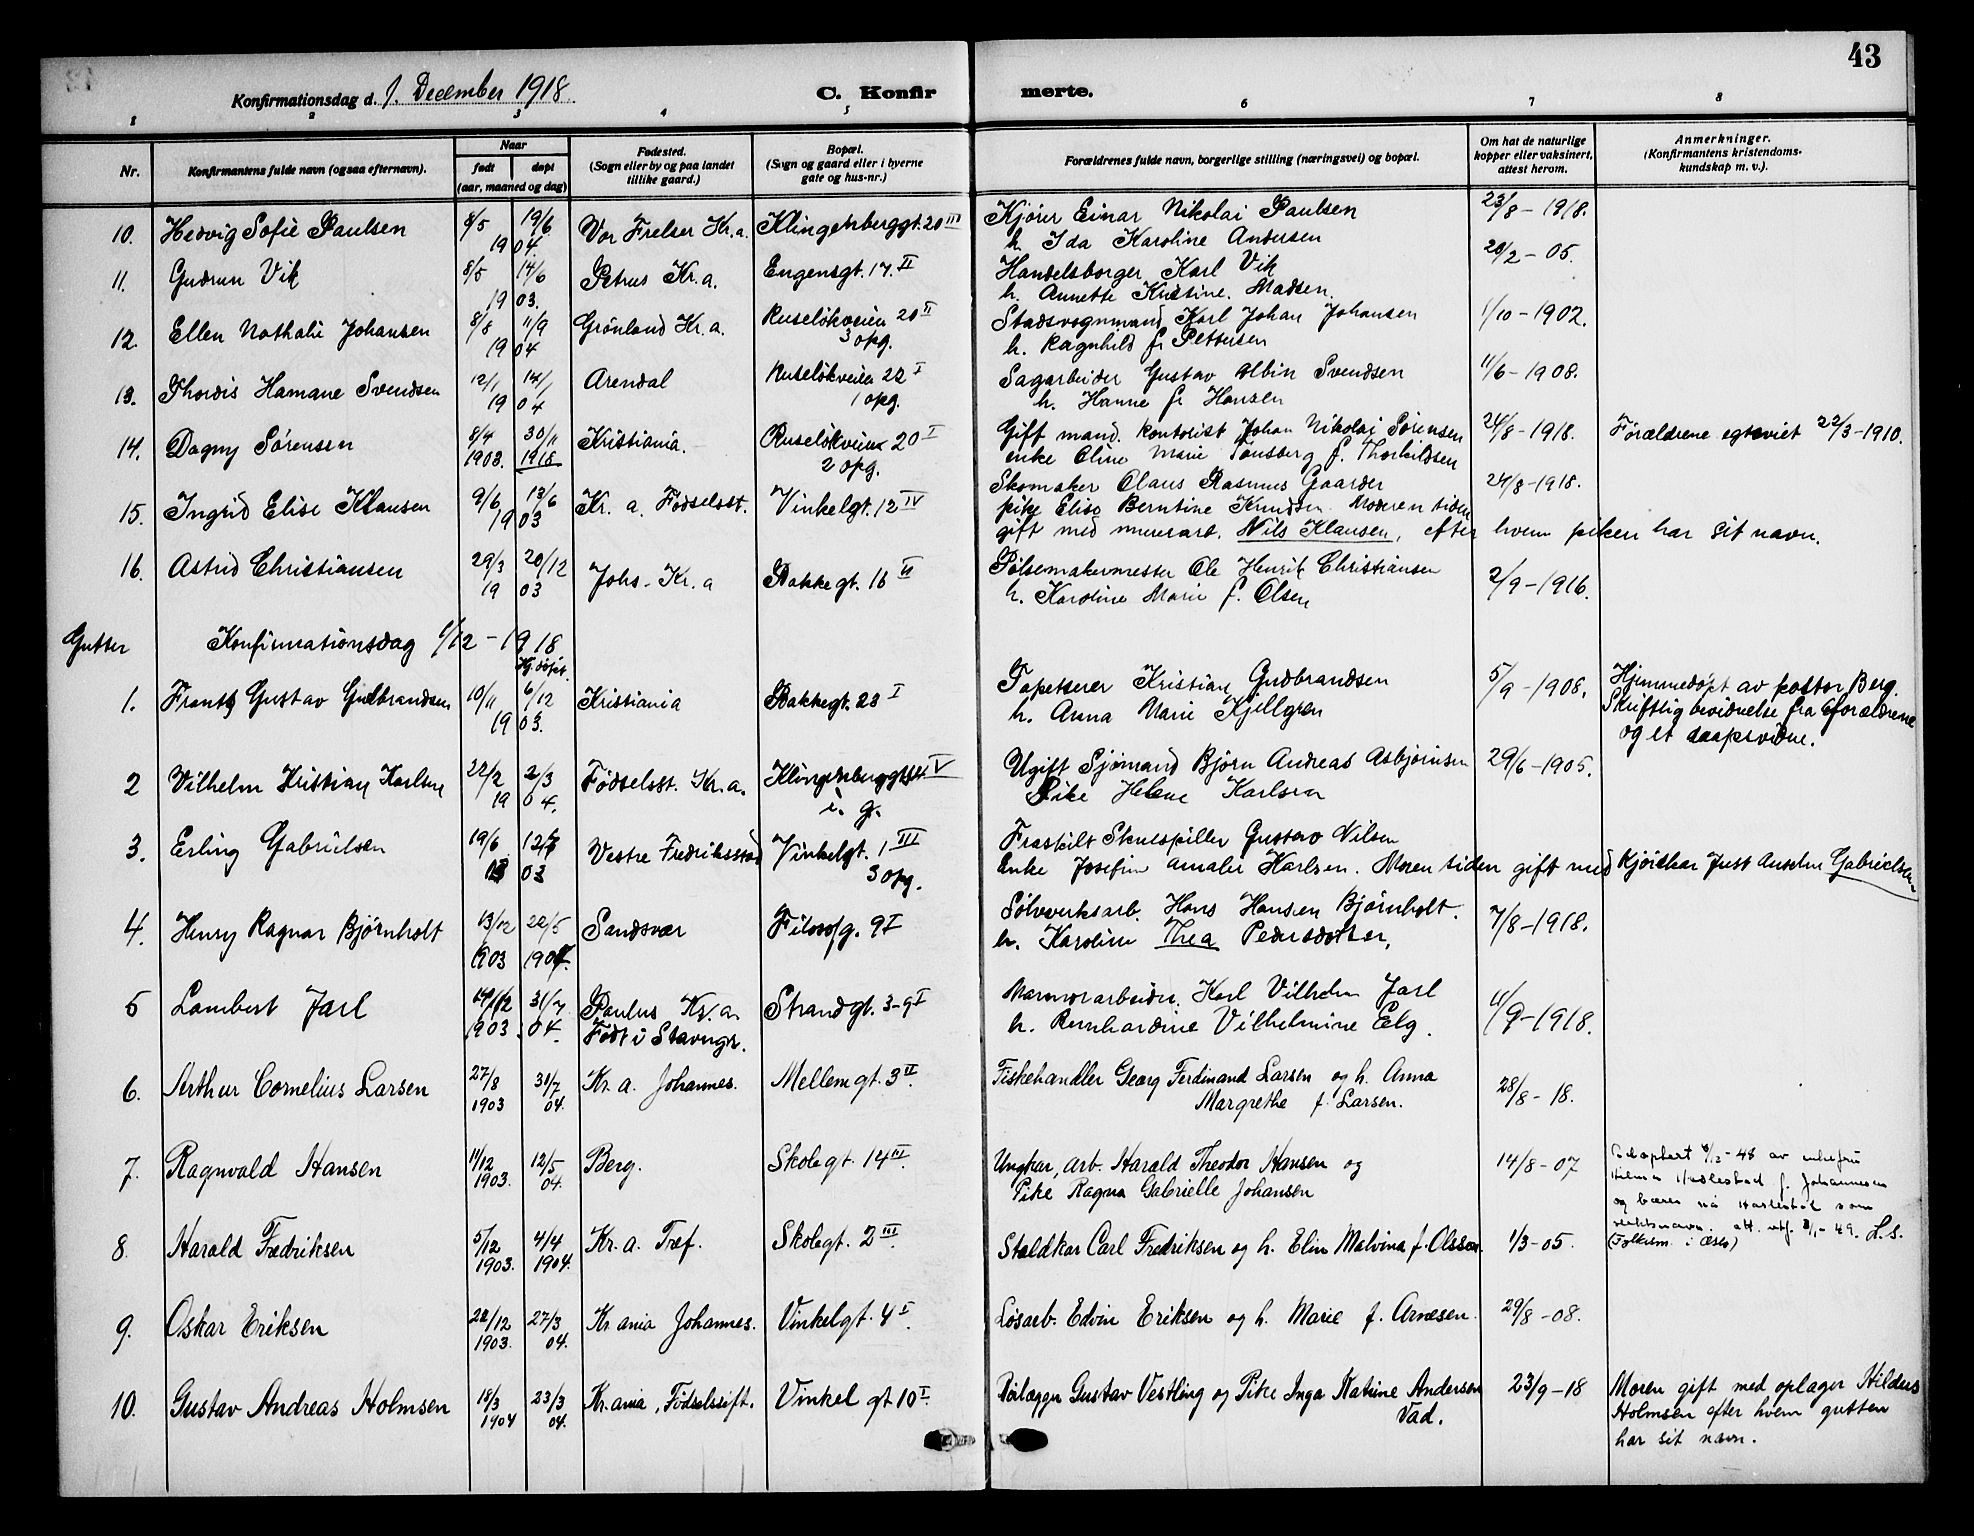 43
Konfirmationsdag d. 1. December 1918. C. Konfirmerte.
1 2 3 4 5 6 7 8
Nr. Konfirmantens fulde navn (ogsaa efternavn). Naar født døpt (aar, maaned og dag) Fødested. (Sogn eller by og paa landet tillike gaard.) Bopæl. (Sogn og gaard eller i byerne gate og hus-nr.) Forældrenes fulde navn, borgerlige stilling (næringsvei) og bopæl. Om hat de naturlige kopper eller vaksinert, attest herom. Anmerkninger. (Konfirmantens kristendoms-kundskap m. v.).
10. Hedvig Sofie Paulsen 8/5 19/6 1904 Vor Frelser Kr.a. Klingenberggt. 20 III Kjører Einar Nikolai Paulsen 23/8 - 1918.
h. Ida Karoline Andersen
11. Gudrun Vik 8/5 14/6 1903. Petrus Kr.a. Engensgt. 17. II Handelsborger Karl Vik 20/2 - 05.
h. Annette Kristine Madsen.
12. Ellen Nathalie Johansen 8/8 11/9 1904 Grønland Kr.a. Ruseløkveien 20 II 3 opg. Stadsvognmand Karl Johan Johansen 1/10 - 1902.
h. Ragnhild f. Pettersen
13. Thordis Hamane Svendsen 12/1 14/1 1904 Arendal Ruseløkveien 22 I 1 opg. Sagarbeider Gustav Albin Svendsen 11/6 - 1908.
h. Hanne f. Hansen
14. Dagny Sørensen 8/4 1903. 30/11 1918 Kristiania. Ruseløkveien 20 I 2 opg. Gift mand. Kontorist Johan Nikolai Sørensen 24/8 - 1918. Forældrene egteviet 22/3 - 1910.
enke Oline Marie Tønsberg f. Thorkildsen
15. Ingrid Elise Klausen 9/6 13/6 1903 Kr.a. Fødselsst. Vinkelgt. 12 IV Skomaker Olaus Rasmus Gaarder 24/8 - 1918.
pike Elise Berntine Knudsen. Moderen siden
gift med murerarb. Nils Klausen, efter hvem piken har sit navn.
16. Astrid Christiansen 29/3 20/12 1903 Johs. Kr.a Bakkegt. 16 II Pølsemakermester Ole Henrik Christiansen 2/9 - 1916.
h. Karoline Marie f. Olsen
Gutter Konfirmationsdag 1/12 - 1918
Hj.døpt.
1. Frants Gustav Gudbrandsen 10/11 6/12 1903. Kristiania Bakkegt. 23 I Tapetserer Kristian Gudbrandsen 5/9 - 1908. Hjemmedøpt av pastor Berg.
h. Anna Marie Kjellgren Skriftlig bevidnelse fra forældrene
og et daapsvidne.
2 Vilhelm Kristian Karlsen 22/2 2/3 1904. Fødselsst. Kr.a. Klingenberggt. V i. g. Ugift Sjømand Bjørn Andreas Asbjørnsen 29/6 - 1905.
Pike Helene Karlsen
3. Erling Gabrielsen 19/6 12/7 03 Vestre Fredriksstad Vinkelgt. 1 III 3 opg. Fraskilt Skuespiller Gustav Nilsen
Enke Josefine Amalie Karlsen. Moren siden gift med Kjørekar Just Anselm Gabrielsen
4. Henry Ragnar Bjørnholt 13/12 1903 22/5 1904. Sandsvær Filosofg. 9 I Sølvverksarb. Hans Hansen Bjørnholt. 7/8 - 1918.
h. Karoline Thea Pedersdatter,
5 Lambert Jarl 14/12 1903 31/7 04. Paulus Kr.a. Født i Stavanger. Strandgt. 3-9 I Marmorarbeider. Karl Vilhelm Jarl 11/9 - 1918.
h. Bernhardine Vilhelmine Elg.
6. Arthur Cornelius Larsen 27/8 1903 31/7 04. Kr.a. Johannes. Mellemgt. 3 II. Fiskehandler Georg Ferdinand Larsen og h. Anna 28/8 - 18.
Margrethe f. Larsen.
7. Ragnvald Hansen 11/12 1903. 12/5 04. Berg. Skolegt. 14 III. Ungkar, arb. Harald Theodor Hansen og 14/8 - 07
Pike Ragna Gabrielle Johansen
Adoptert /12 - 48 av enkefru
f. Johannesen
og bærer nå som
slektsnavn. att. utf. 49. L.S.
(Folkereg. i Oslo)
8. Harald Fredriksen 5/12 1903. 4/4 1904. Kr.a. Tref. Skolegt. 2 III. Staldkar Carl Fredriksen og h. Elin Malvina f. Olsson. 1/3 - 05.
9. Oskar Eriksen 22/12 1903. 27/3 04. Kr.ania Johannes. Vinkelgt. 4 I. Løsarb. Edvin Eriksen og h. Marie f. Arnesen. 29/8 - 08.
10. Gustav Andreas Holmsen 18/3 1904 23/3 04. Kr.ania, Fødselsstift. Vinkel gt 10 I. Rørlægger Gustav Vestling og Pike Inga Katrine Andersen 23/9 - 18 Moren gift med oplager Hildus
Vad. Holmsen efter hvem gutten
har sit navn.